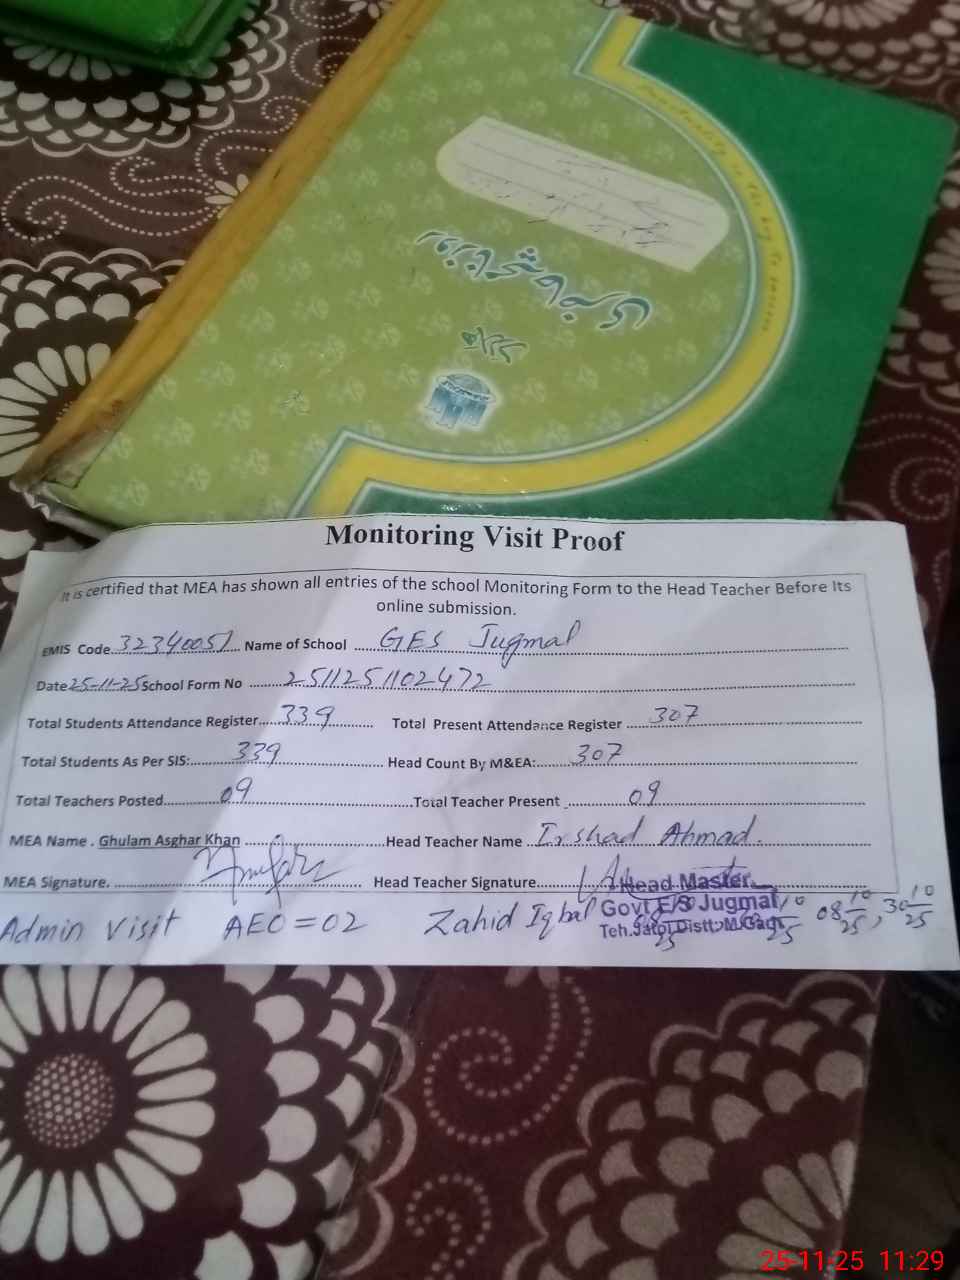 Punctuality is the key to success
Monitoring Visit Proof
It is certified that MEA has shown all entries of the school Monitoring Form to the Head Teacher Before Its
online submission.
EMIS Code 32340051 Name of School GES Jugmal
Date 25-11-25 School Form No 2511251102472
Total Students Attendance Register 339 Total Present Attendance Register 307
Total Students As Per SIS: 339 Head Count By M&EA: 307
Total Teachers Posted 09 Total Teacher Present 09
MEA Name . Ghulam Asghar Khan Head Teacher Name Irshad Ahmad.
MEA Signature. Head Teacher Signature
Head Master
Govt E/S Jugmal
Teh.Jatoi Distt: M.Garh
Admin Visit AEO = 02 Zahid Iqbal 08 10/25, 30 10/25
25-11-25 11:29